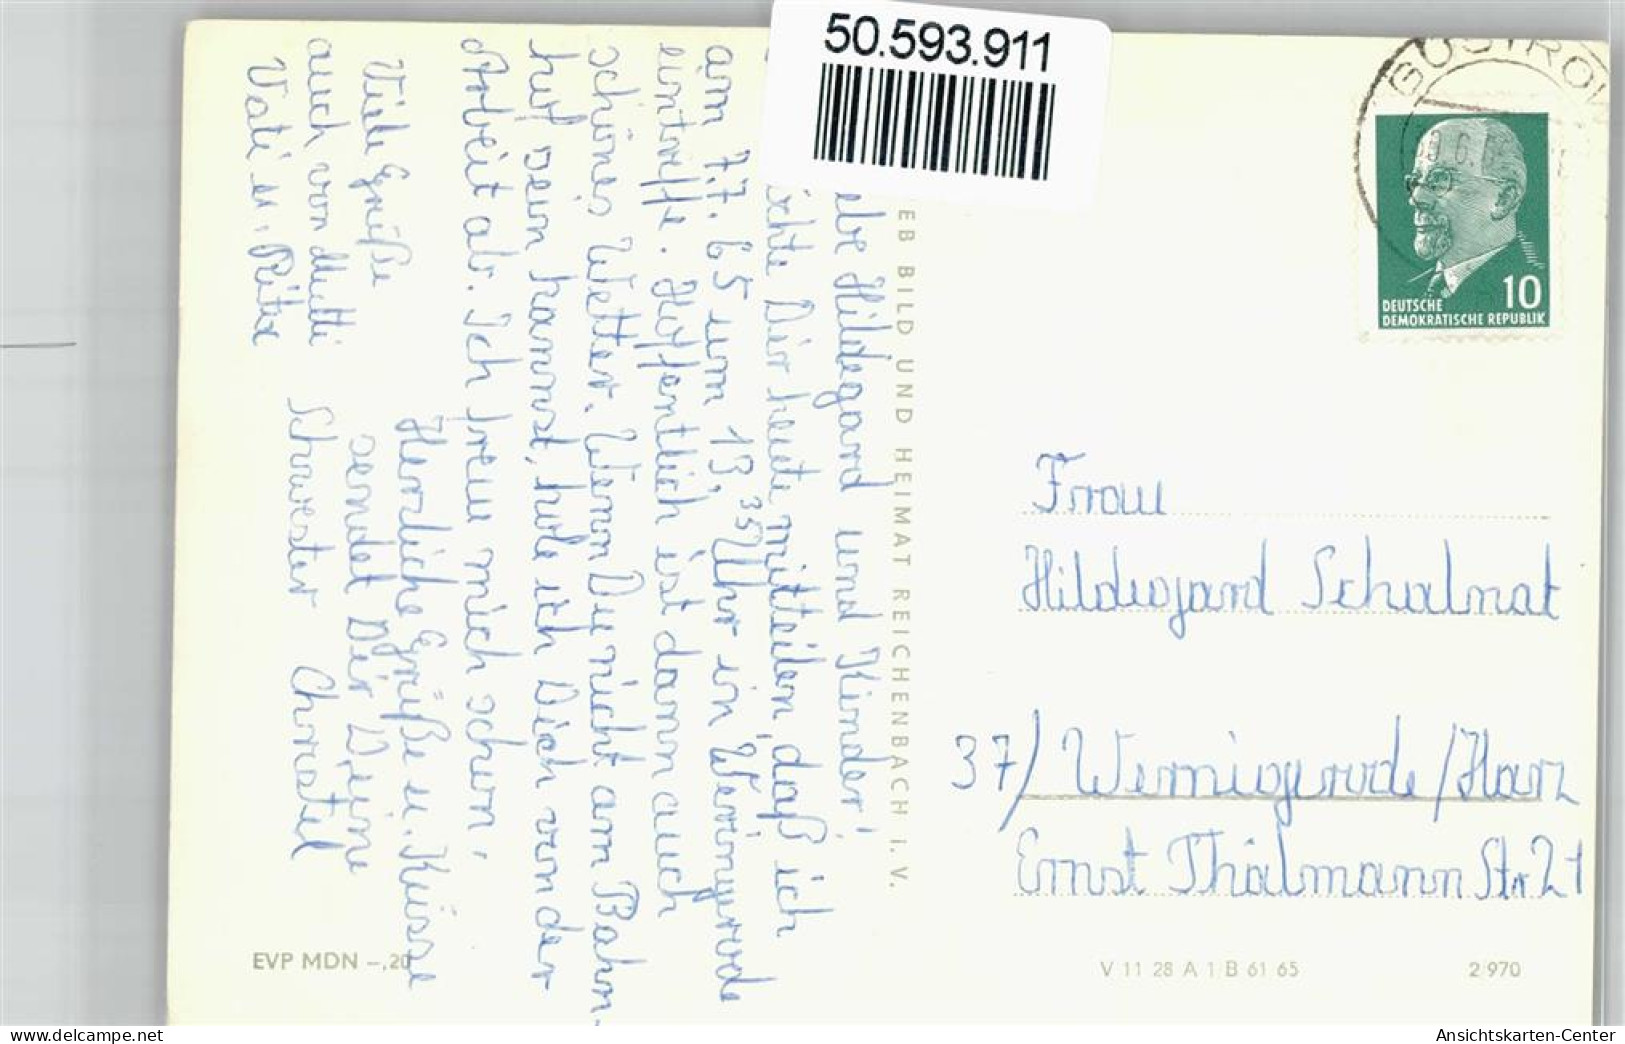 50.593.911
GÜSTROW
10
DEUTSCHE
DEMOKRATISCHE REPUBLIK
Hildegard und Kinder!
Dir heute mitteilen, daß ich
am 7.7. 65 um 13,35 Uhr in Wernigerode
eintreffe. Hoffentlich ist dann auch
schönes Wetter. Wenn Du nicht am Bahn-
hof sein kannst, hole ich Dich von der
Arbeit ab. Ich freu mich schon,
Herzliche Grüße u. Küsse
sendet Dir Deine
Schwester Christel
Viele Grüße
auch von Mutti
Vati u.
EB BILD UND HEIMAT REICHENBACH i. V.
Frau
Hildegard Schalnat
37/ Wernigerode /Harz
Ernst Thälmann Str 21
EVP MDN –,20
V 11 28 A 1 B 61 65
2 970
www.delcampe.net
Ansichtskarten-Center